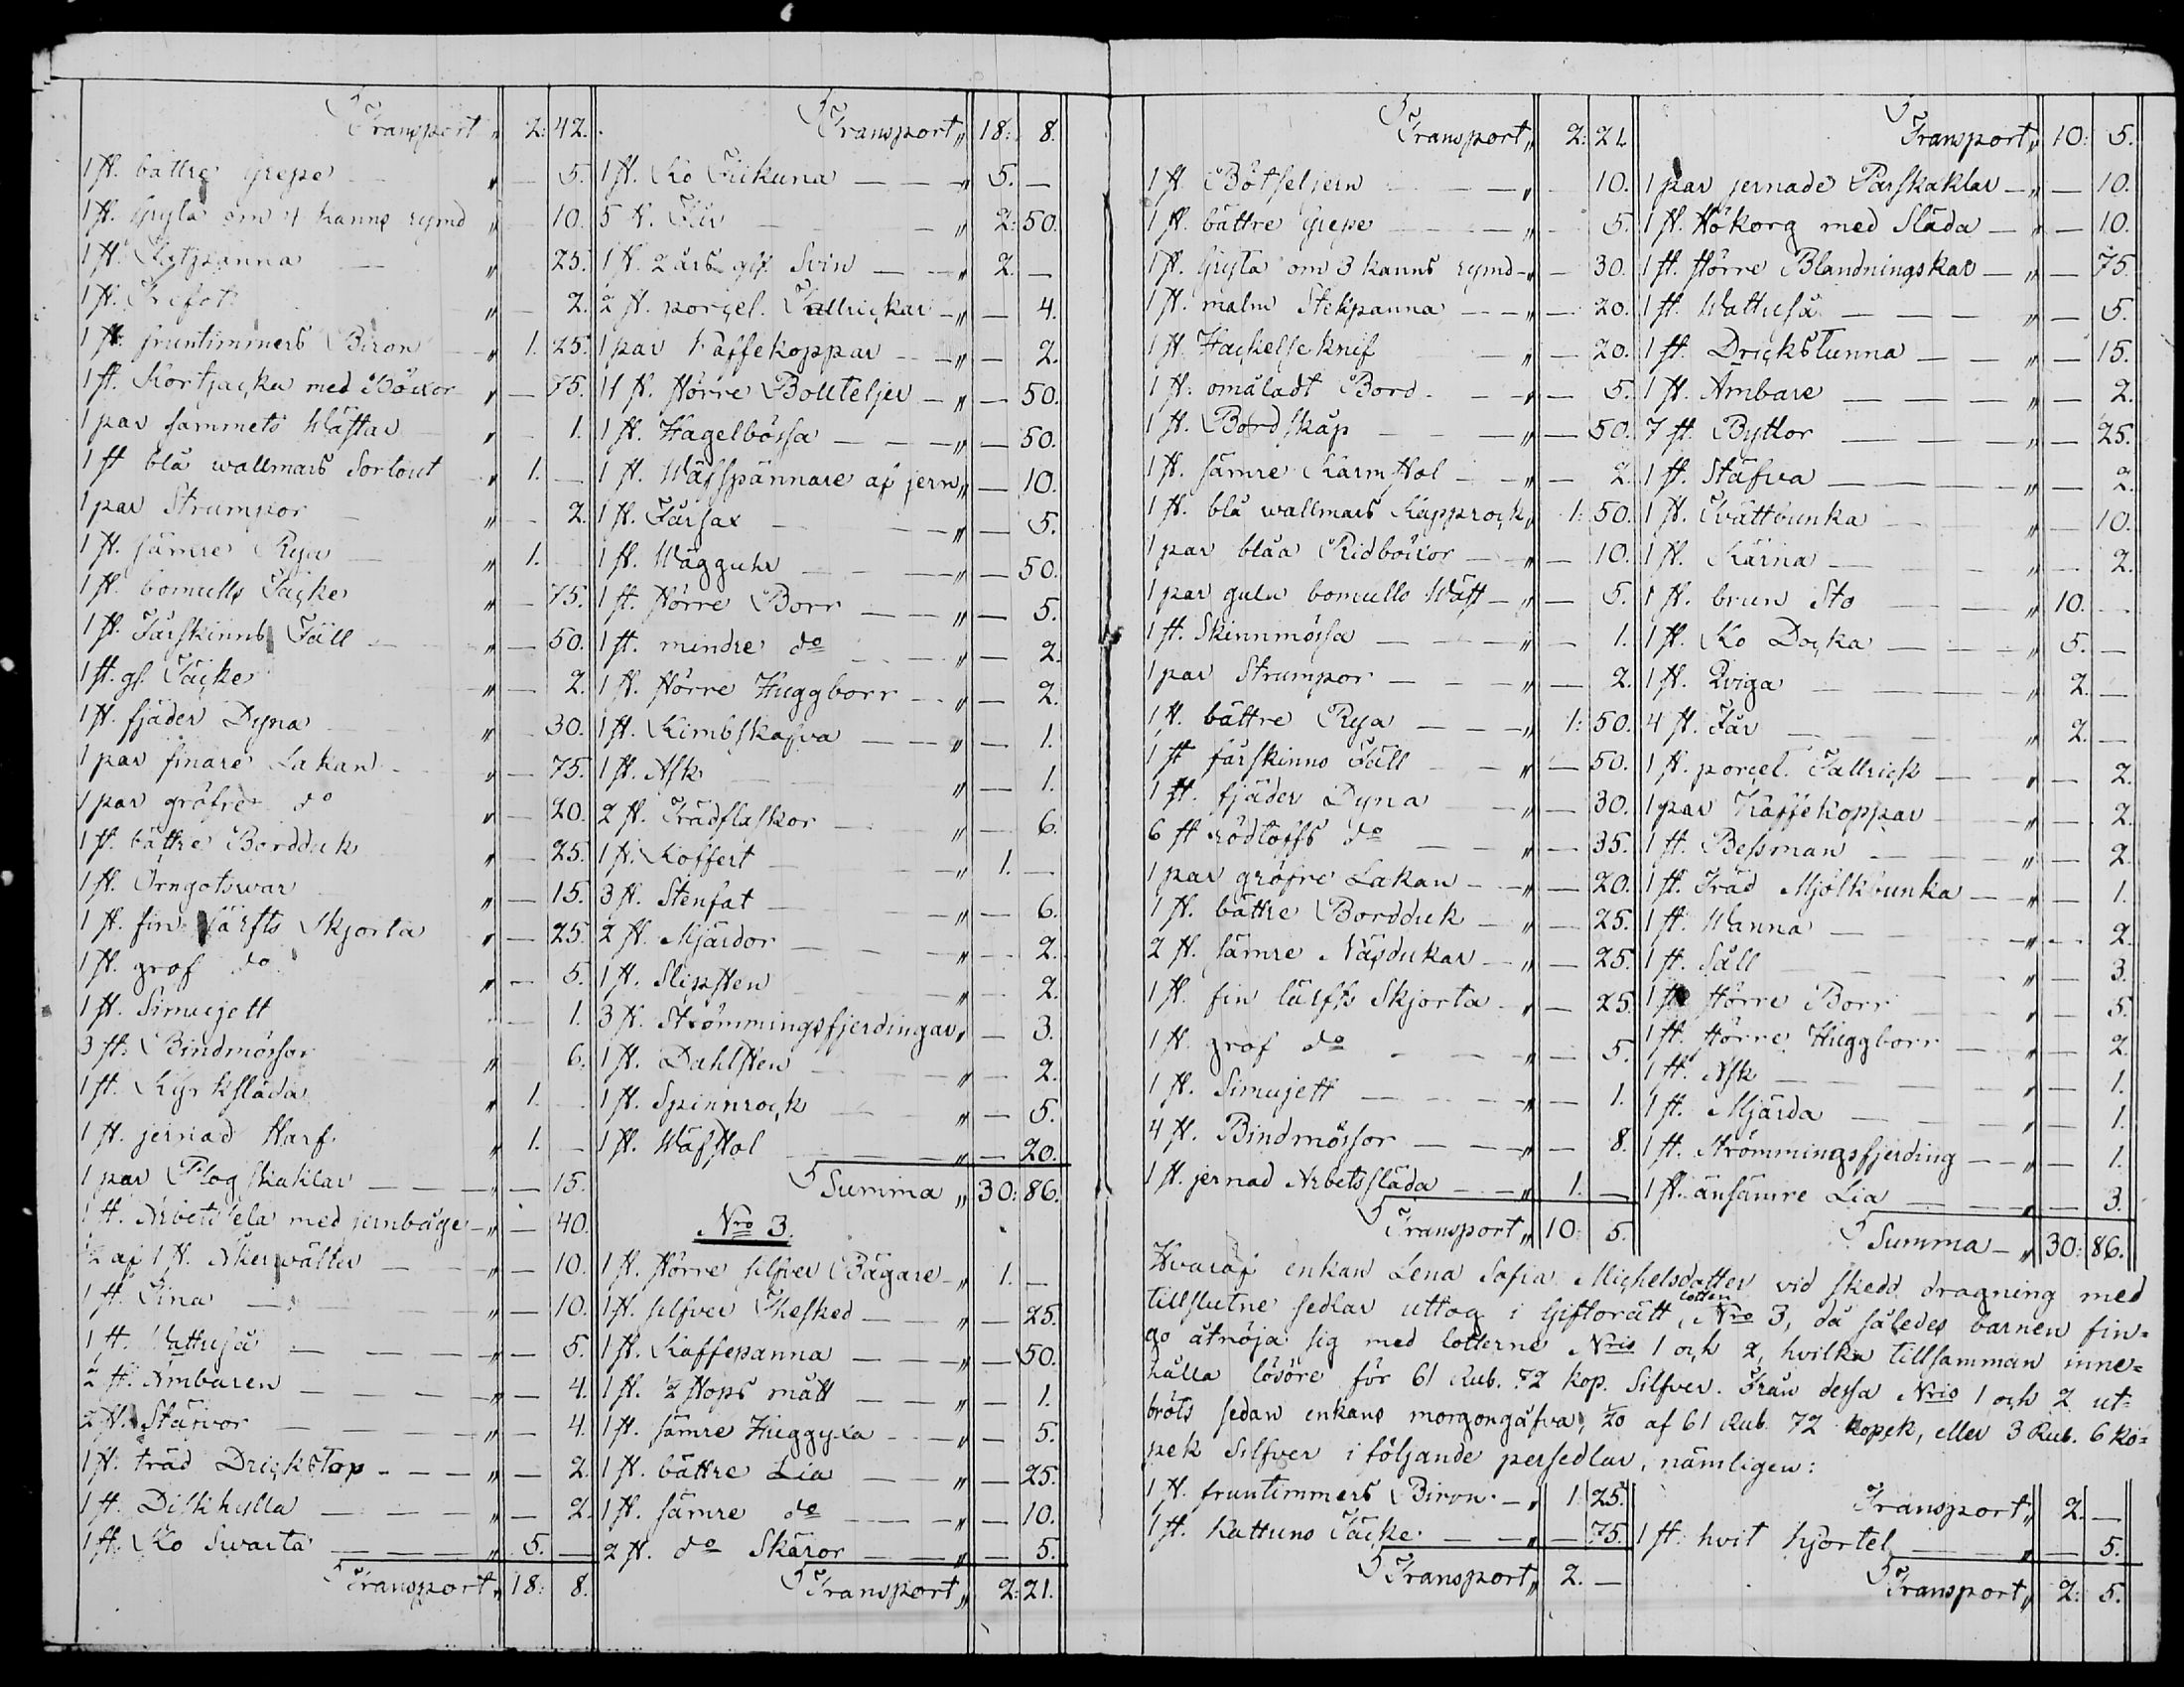 Transport „ 2: 42.
1 st. bättre Grepe „ — 5.
1 st. Gryta om 4 kanns rymd „ 10.
1 st. Stekpanna — „ 25.
1 st. Trefot „ — 2.
1 st. fruntimmers Biron — „ 1. 25.
1 st. Kortjacka med Böxor „ — 75.
1 par sammets Wästar „ — 1.
1 st blå wallmars Sortout „ 1. —
1 par Strumpor — „ — 2.
1 st. sämre Rya — „ 1. —
1 st. bomulls Täcke „ — 75.
1 st. Fårskinns Fäll — „ — 50.
1 st. gl. Täcke „ — 2.
1 st. fjäder Dyna „ — 30.
1 par finare Lakan „ — 75.
1 par gröfre do „ — 20.
1 st. bättre Bordduk „ — 25.
1 st. Örngotswar „ — 15.
1 st. fin lärfts Skjorta „ — 25.
1 st. grof do „ — 5.
1 st. Simujett „ — 1.
3 st. Bindmössor „ 6.
1 st. Kyrksläda „ 1. —
1 st. jernad Harf „ 1. —
1 par Plogskaklar — — — „ — 15.
1 st. Arbetssela med jernbåge — „ — 40.
½ af 1 st. Åkerwälter — — „ — 10.
1 st. Tina — „ — 10.
1 st. Wattuså — — — — „ — 5.
2 st. Ämbaren — — — „ — 4.
2 st. Stäfvor — — — — „ — 4.
1 st. träd Drickstop — — — „ — 2.
1 st. Diskhylla — — — „ — 2.
1 st. Ko Swarta — — — — „ 5. —
Transport „ 18: 8.
Transport „ 18: 8.
1 st. Ko Fickuna — — — „ 5. —
5 st. Får — — „ 2: 50.
1 st. 2 års gl. Svin — — „ 2. —
2 st. porcel. Tallrickar — „ — 4.
1 par Kaffekoppar — — „ — 2.
11 st. större Boutteljer — „ — 50.
1 st. Hagelbössa — — — „ — 50.
1 st. Wäfspännare af jern „ — 10.
1 st. Fårsax — — „ — 5.
1 st. Wägguhr — — — „ — 50.
1 st. större Borr — — — „ — 5.
1 st. mindre do — — „ — 2.
1 st. större Huggborr — — „ — 2.
1 st. Kimbskafva — — — „ — 1.
1 st. Ask — „ — 1.
2 st. Trädflaskor — — „ — 6.
1 st. Koffert — — „ 1. —
3 st. Stenfat — — — „ — 6.
2 st. Mjärdor — — — „ — 2.
1 st. Slipsten — — — „ — 2.
3 st. Strömmingsfjerdingar „ — 3.
1 st. Dahlsten — — — „ — 2.
1 st. Spinnrock — — „ — 5.
1 st. Wäfstol — — — „ — 20.
Summa „ 30: 86.
Nro 3.
1 st. större silfver Bägare „ 1. —
1 st. silfver Thesked — — „ — 25.
1 st. Kaffepanna — — — „ — 50.
1 st. ½ stops mått — — „ — 1.
1 st. sämre Huggyxa — — „ — 5.
1 st. bättre Lia — — „ — 25.
1 st. sämre do — — — „ — 10.
2 st. do Skäror — — „ — 5.
Transport „ 2: 21.
Transport „ 2: 21.
1 st. Bötseljern — — — „ — 10.
1 st. bättre Grepe — — — „ — 5.
1 st. Gryta om 3 kanns rymd — „ — 30.
1 st. malm Stekpanna — — „ — 20.
1 st. Hackelse knif „ — 20.
1 st. omåladt Bord — — „ — 5.
1 st. Bordskåp — — — „ — 50.
1 st. sämre Karmstol — — „ — 2.
1 st. blå wallmars Kapprock „ 1: 50.
1 par blåa Ridböxor — — „ — 10.
1 par gula bomulls Wäst — „ — 5.
1 st. Skinnmössa — — — „ — 1.
1 par Strumpor — — — „ — 2.
1 st. bättre Rya — — — „ 1: 50.
1 st fårskinns Fäll — — „ — 50.
1 st. fjäder Dyna — — „ — 30.
6 st do — — „ — 35.
1 par gröfre Lakan — — „ — 20.
1 st. bättre Bordduk — „ — 25.
2 st. sämre Näsdukar — „ — 25.
1 st. fin lärfts Skjorta — „ — 25.
1 st. grof do — — — „ — 5.
1 st. Simujett — — — — „ — 1.
4 st. Bindmössor — — — „ — 8.
1 st. jernad Arbetssläda — — „ 1. —
Transport „ 10: 5.
Transport „ 10: 5.
1 par jernade Parskaklar — „ — 10.
1 st. Hökorg med Släda — „ — 10.
1 st. större Blandningskar — „ — 75.
1 st. Wattuså — — — „ — 5.
1 st. Drickstunna — — „ — 15.
1 st. Ämbare — — — — „ — 2.
7 st. Byttor — — — — „ — 25.
1 st. Stäfva — — — — „ — 2.
1 st. Tvättbunka — — — „ — 10.
1 st. Kärna — — — — „ — 2.
1 st. brun Sto — — — „ 10. —
1 st. Ko Docka — — — „ 5. —
1 st. Qviga — — — — „ 2. —
4 st. Får — — — — „ 2. —
1 st. porcel. Tallrick — — „ — 2.
1 par Kaffekoppar — — „ — 2.
1 st. Bessman — — — „ — 2.
1 st. Träd Mjölkbunka — — „ — 1.
1 st. Wanna — — — „ — 2.
1 st. Såll — — — — „ — 3.
1 st. större Borr — — — „ — 5.
1 st. större Huggborr — — „ — 2.
1 st. Ask — — — — „ — 1.
1 st. Mjärda — — — — „ — 1.
1 st. strömmingsfjerding — — „ — 1.
1 st. änsämre Lia — — — „ — 3.
Summa — „ 30: 86.
Hvaraf enkan Lena Sofia Michelsdotter vid skedd dragning med
tillslutne sedlar uttog i Giftorätt lotten Nro 3, då således barnen fin-
go åtnöja sig med lotterne Nris 1 och 2, hvilka tillsamman inne-
hålla lösöre för 61 Rub. 72 kop. Silfver. Från dessa Nris 1 och 2 ut-
bröts sedan enkans morgongåfva, 1/20 af 61 Rub. 72 kopek, eller 3 Rub. 6 ko-
pek Silfver i följande persedlar, nämligen:
1 st. fruntimmers Biron — „ 1. 25.
1 st. Kattuns Täcke — — „ — 75.
Transport „ 2. —
Transport „ 2. —
1 st. hvit kjortel — — „ — 5.
Transport „ 2: 5.